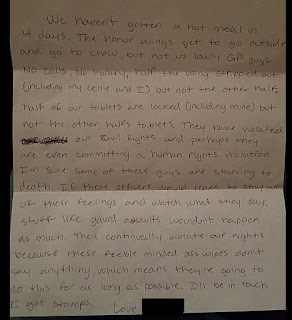 We haven't gotten a hot meal in
4 days. The honor wings get to go outside
and go to chow, but not us lowly GP guys
No calls, No library, half the wing stripped out
(including my cellie and I), but not the other half,
half of our tablets are locked (including mine) but
not the other half's tablets. They have violated
our Civil Rights and perhaps they
are even committing a human rights violation
I'm sure some of these guys are starving to
death. If these officers would learn to stay out
of their feelings and watch what they say,
stuff like gaurd assaults wouldn't happen
as much. They continually violate our rights
because these feeble minded ass wipes don't
say anything, which means they're going to
do this for as long as possible. I'll be in touch
I got stamps. Love